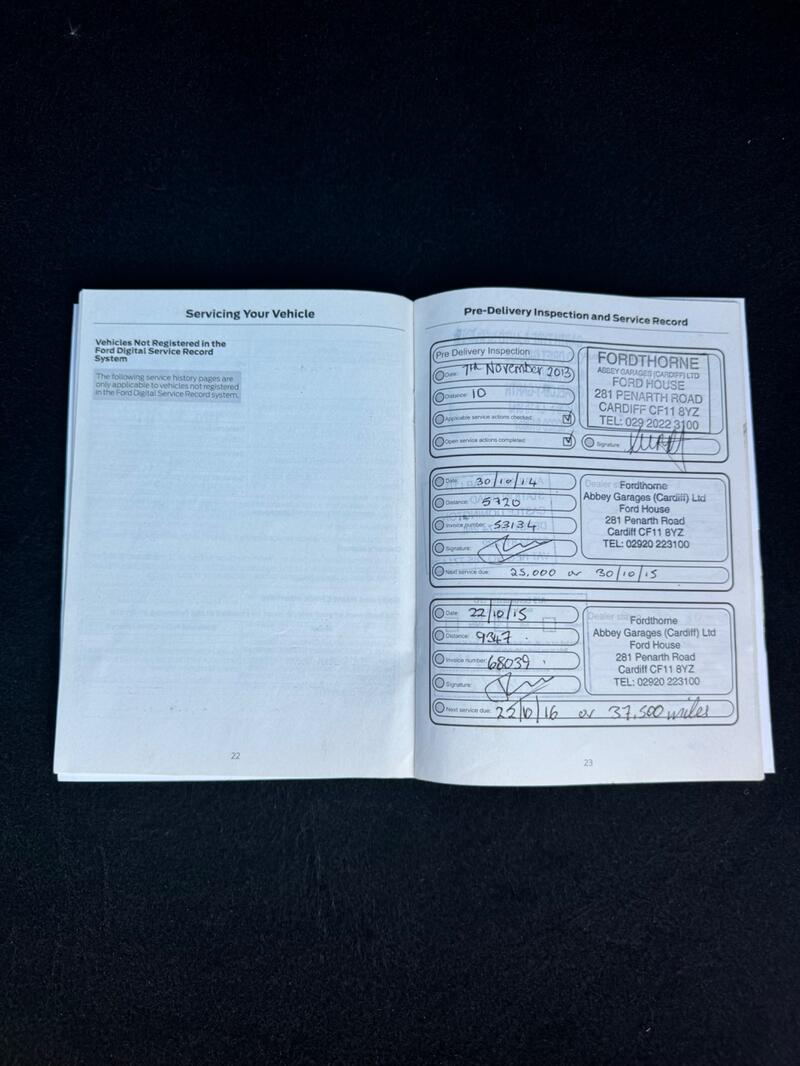 Servicing Your Vehicle
Vehicles Not Registered in the
Ford Digital Service Record
System
The following service history pages are
only applicable to vehicles not registered
in the Ford Digital Service Record system.
22
Pre-Delivery Inspection and Service Record
Pre Delivery Inspection
Date: 7th November 2013
Distance: 10
Applicable service actions checked:
Open service actions completed:
FORDTHORNE
ABBEY GARAGES (CARDIFF) LTD
FORD HOUSE
281 PENARTH ROAD
CARDIFF CF11 8YZ
TEL: 029 2022 3100
Signature:
Date: 30/10/14
Distance: 5720
Invoice number: 53134
Signature:
Next service due: 25,000 or 30/10/15
Dealer stamp
Fordthorne
Abbey Garages (Cardiff) Ltd
Ford House
281 Penarth Road
Cardiff CF11 8YZ
TEL: 02920 223100
Date: 22/10/15
Distance: 9347
Invoice number: 68039
Signature:
Next service due: 22/10/16 or 37,500 miles
Dealer stamp
Fordthorne
Abbey Garages (Cardiff) Ltd
Ford House
281 Penarth Road
Cardiff CF11 8YZ
TEL: 02920 223100
23